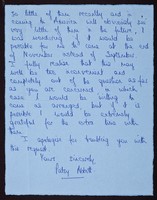 so little of him recently and is
coming to America will obviously see
very little of him in the future, I
was wondering if it would be
possible for me to come at the end
of November instead of September.
I fully realise that this may
well be too inconvenient and
completely out of the question as far
as you are concerned in which
case I would be willing to
come as arranged, but if it is
possible I would be extremely
grateful for the extra time with
him.
I apologise for troubling you with
this request
Yours Sincerely
Patsy